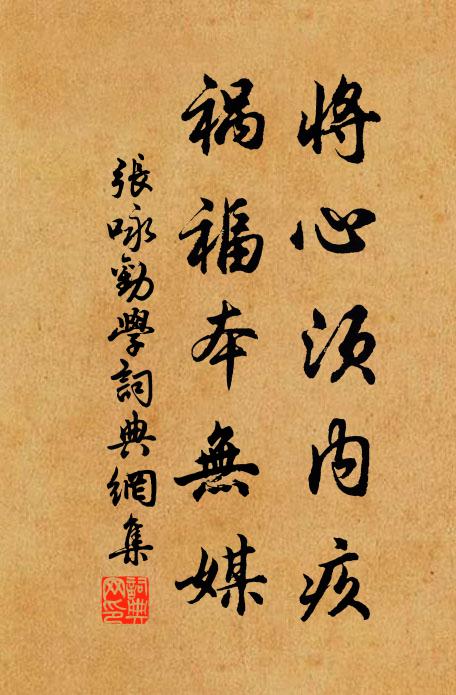 將心須內疚
禍福本無媒
張咏勸學詞典網集
詞典
网印